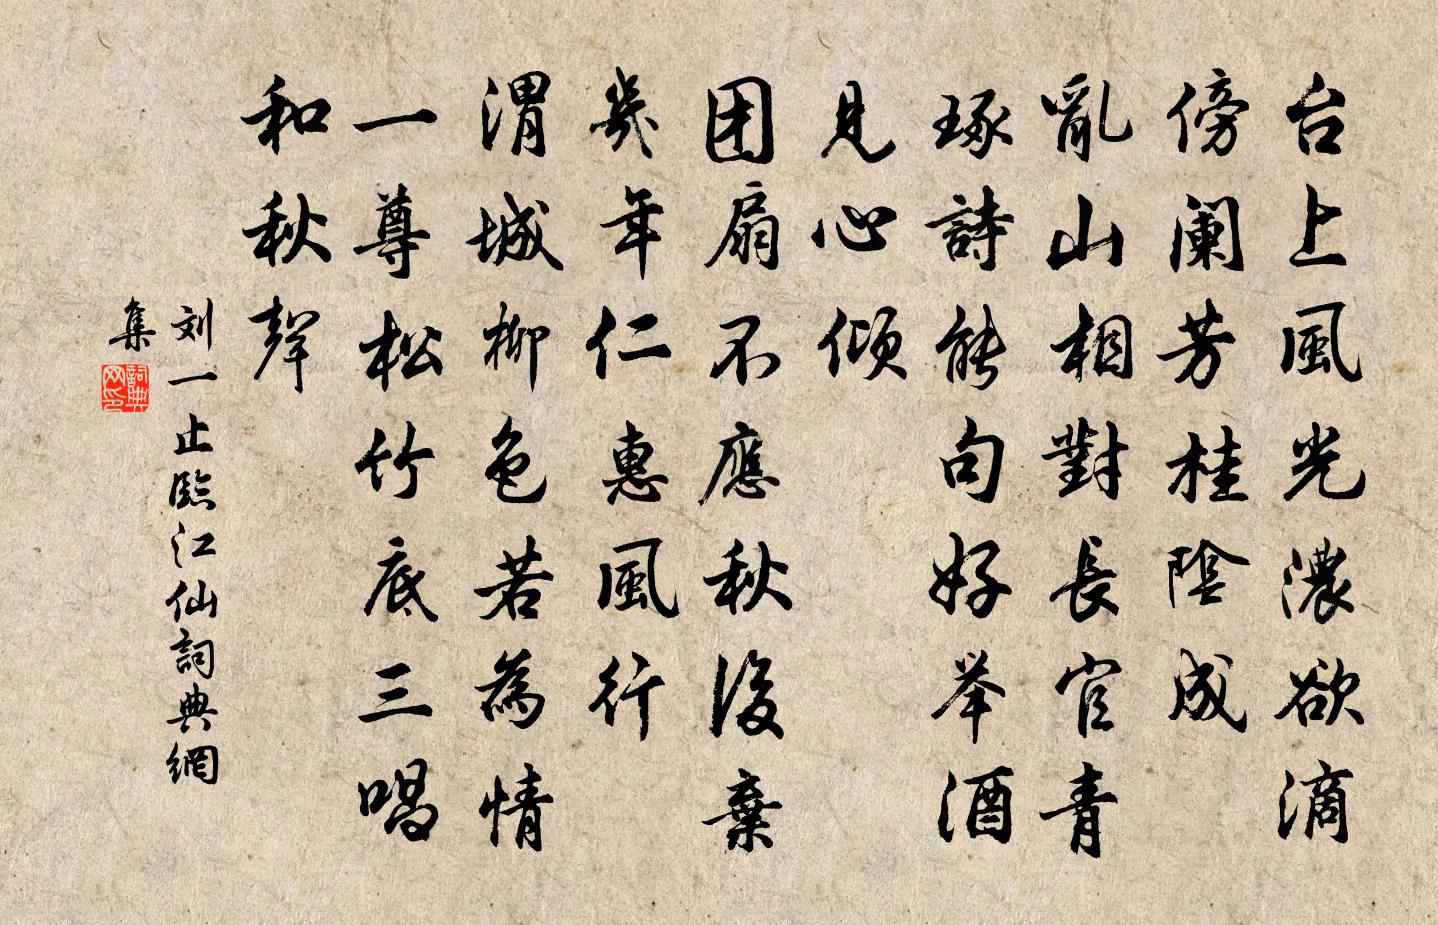 台上風光濃欲滴
傍阑芳桂陰成
亂山相對長官青
琢詩能句好举酒
見心倾
团扇不應秋後棄
幾年仁惠風行
渭城柳色若為情
一尊松竹底三唱
和秋聲
刘一止臨江仙詞典網
集
詞典
网印